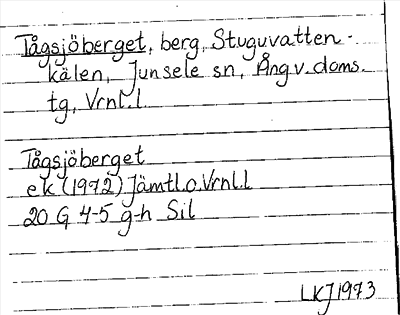 Tågsjöberget, berg, Stuguvatten-
kälen, Junsele sn, Ång.v.doms.
tg, Vrnl.l.
Tågsjöberget
ek (1972) Jämtl.o.Vrnl.l
20 G 4-5 g-h Sil
LKJ 1973